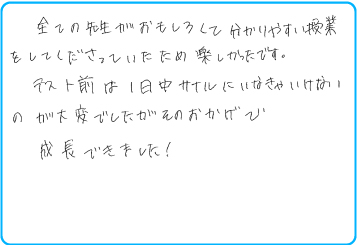 全ての先生がおもしろくて分かりやすい授業
をしてくださっていたため楽しかったです。
テスト前は1日中サイルにいなきゃいけない
のが大変でしたがそのおかげで
成長できました!